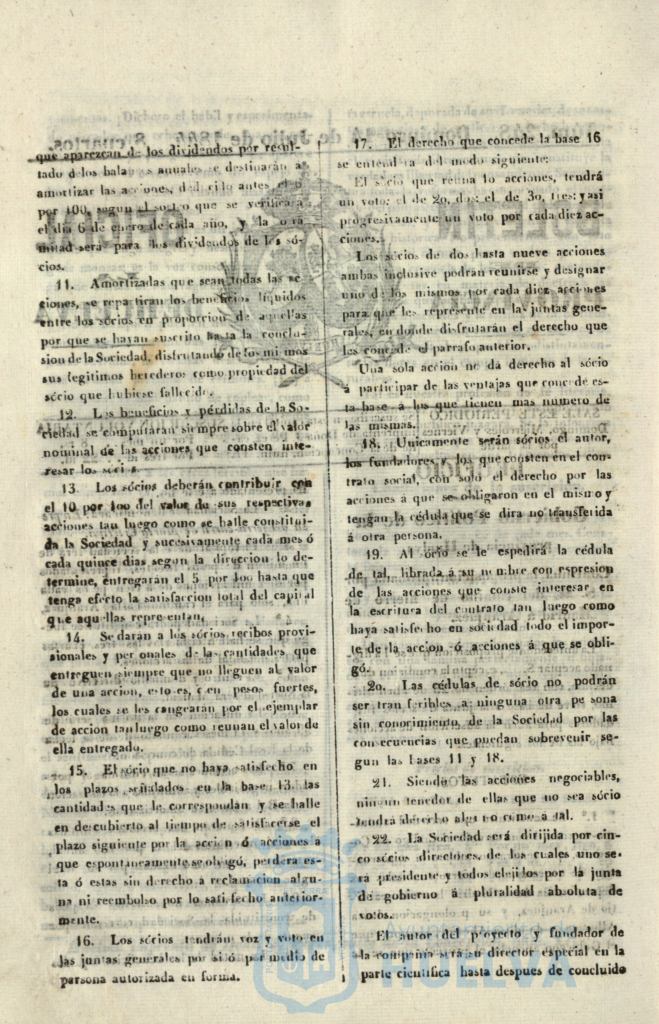 que aparezcan de los dividendos por resul-
tado de los balances anuales se destinarán á
amortizar las acciones,
por 100, segun el sorteo que se verificará
el dia 6 de enero de cada año, y la otra
mitad será para los dividendos de los só-
cios.
11. Amortizadas que sean todas las ac-
ciones, se repartiran los beneficios líquidos
entre los sócios en proporcion de aquellas
por que se hayan suscrito hasta la conclu-
sion de la Sociedad, disfrutando de los mismos
sus legitimos herederos como propiedad del
sócio que hubiese fallecido.
12. Los beneficios y pérdidas de la So-
ciedad se computarán siempre sobre el valor
nominal de las acciones que consten inte-
resar los sócios.
13. Los sócios deberán contribuir con
el 10 por 100 del valor de sus respectivas
acciones tan luego como se halle constitui-
da la Sociedad y sucesivamente cada mes ó
cada quince dias segun la direccion lo de-
termine, entregarán el 5 por 100 hasta que
tenga efecto la satisfaccion total del capital
que aquellas representan.
14. Se darán a los sócios recibos provi-
sionales y personales de las cantidades que
entreguen siempre que no lleguen al valor
de una accion, esto es, cien pesos fuertes,
los cuales se les cangearán por el ejemplar
de accion tan luego como reunan el valor de
ella entregado.
15. El sócio que no haya satisfecho en
los plazos señalados en la base 13. las
cantidades que le correspondan y se halle
en descubierto al tiempo de satisfacerse el
plazo siguiente por la accion ó acciones a
que espontaneamente se obligó, perdera es-
ta ó estas sin derecho a reclamacion algu-
na ni reembolso por lo satisfecho anterior-
mente.
16. Los sócios tendrán voz y voto en
las juntas generales por si ó por medio de
persona autorizada en forma.
17. El derecho que concede la base 16
se entenderá del modo siguiente:
El sócio que reuna 10 acciones, tendrá
un voto; el de 20, dos; el de 30, tres; y asi
progresivamente un voto por cada diez ac-
ciones.
Los sócios de dos hasta nueve acciones
ambas inclusive podrán reunirse y designar
uno de los mismos por cada diez acciones
para que les represente en las juntas gene-
rales, en donde disfrutarán el derecho que
les concede el parrafo anterior.
Una sola accion no da derecho al sócio
á participar de las ventajas que concede es-
ta base á los que tienen mas numero de
las mismas.
18. Unicamente serán sócios el autor,
los fundadores y los que consten en el con-
trato social, con solo el derecho por las
acciones á que se obligaron en el mismo y
tengan la cédula que se dira no transferida
á otra persona.
19. Al sócio se le espedirá la cédula
de tal, librada á su nombre con espresion
de las acciones que conste interesar en
la escritura del contrato tan luego como
haya satisfecho en sociedad todo el impor-
te de la accion ó acciones á que se obli-
gó.
20. Las cédulas de sócio no podrán
ser transferibles a ninguna otra persona
sin conocimiento de la Sociedad por las
consecuencias que puedan sobrevenir se-
gun las bases 11 y 18.
21. Siendo las acciones negociables,
ningun tenedor de ellas que no sea sócio
tendrá derecho alguno como a tal.
22. La Sociedad será dirijida por cin-
co sócios directores, de los cuales uno se-
rá presidente y todos elejidos por la junta
de gobierno á pluralidad absoluta de
votos.
El autor del proyecto y fundador de
la compañia será su director especial en la
parte cientifica hasta despues de concluido
HUELVA